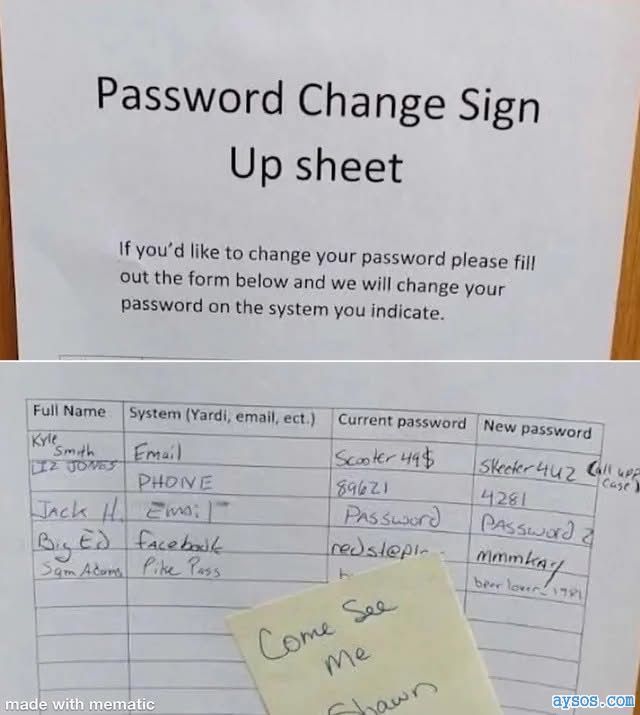 Password Change Sign
Up sheet
If you'd like to change your password please fill
out the form below and we will change your
password on the system you indicate.
Full Name System (Yardi, email, ect.) Current password New password
Kyle Smith Email Scooter49$ Skeeter4U2 (all upper case)
LIZ JONES PHONE 89621 4281
Jack H. Email PASSword PASSword 2
Big ED facebook mmmkay
Sam Adams Pike Pass beerlover_1981
Come See
me
Shawn
made with mematic
aysos.com